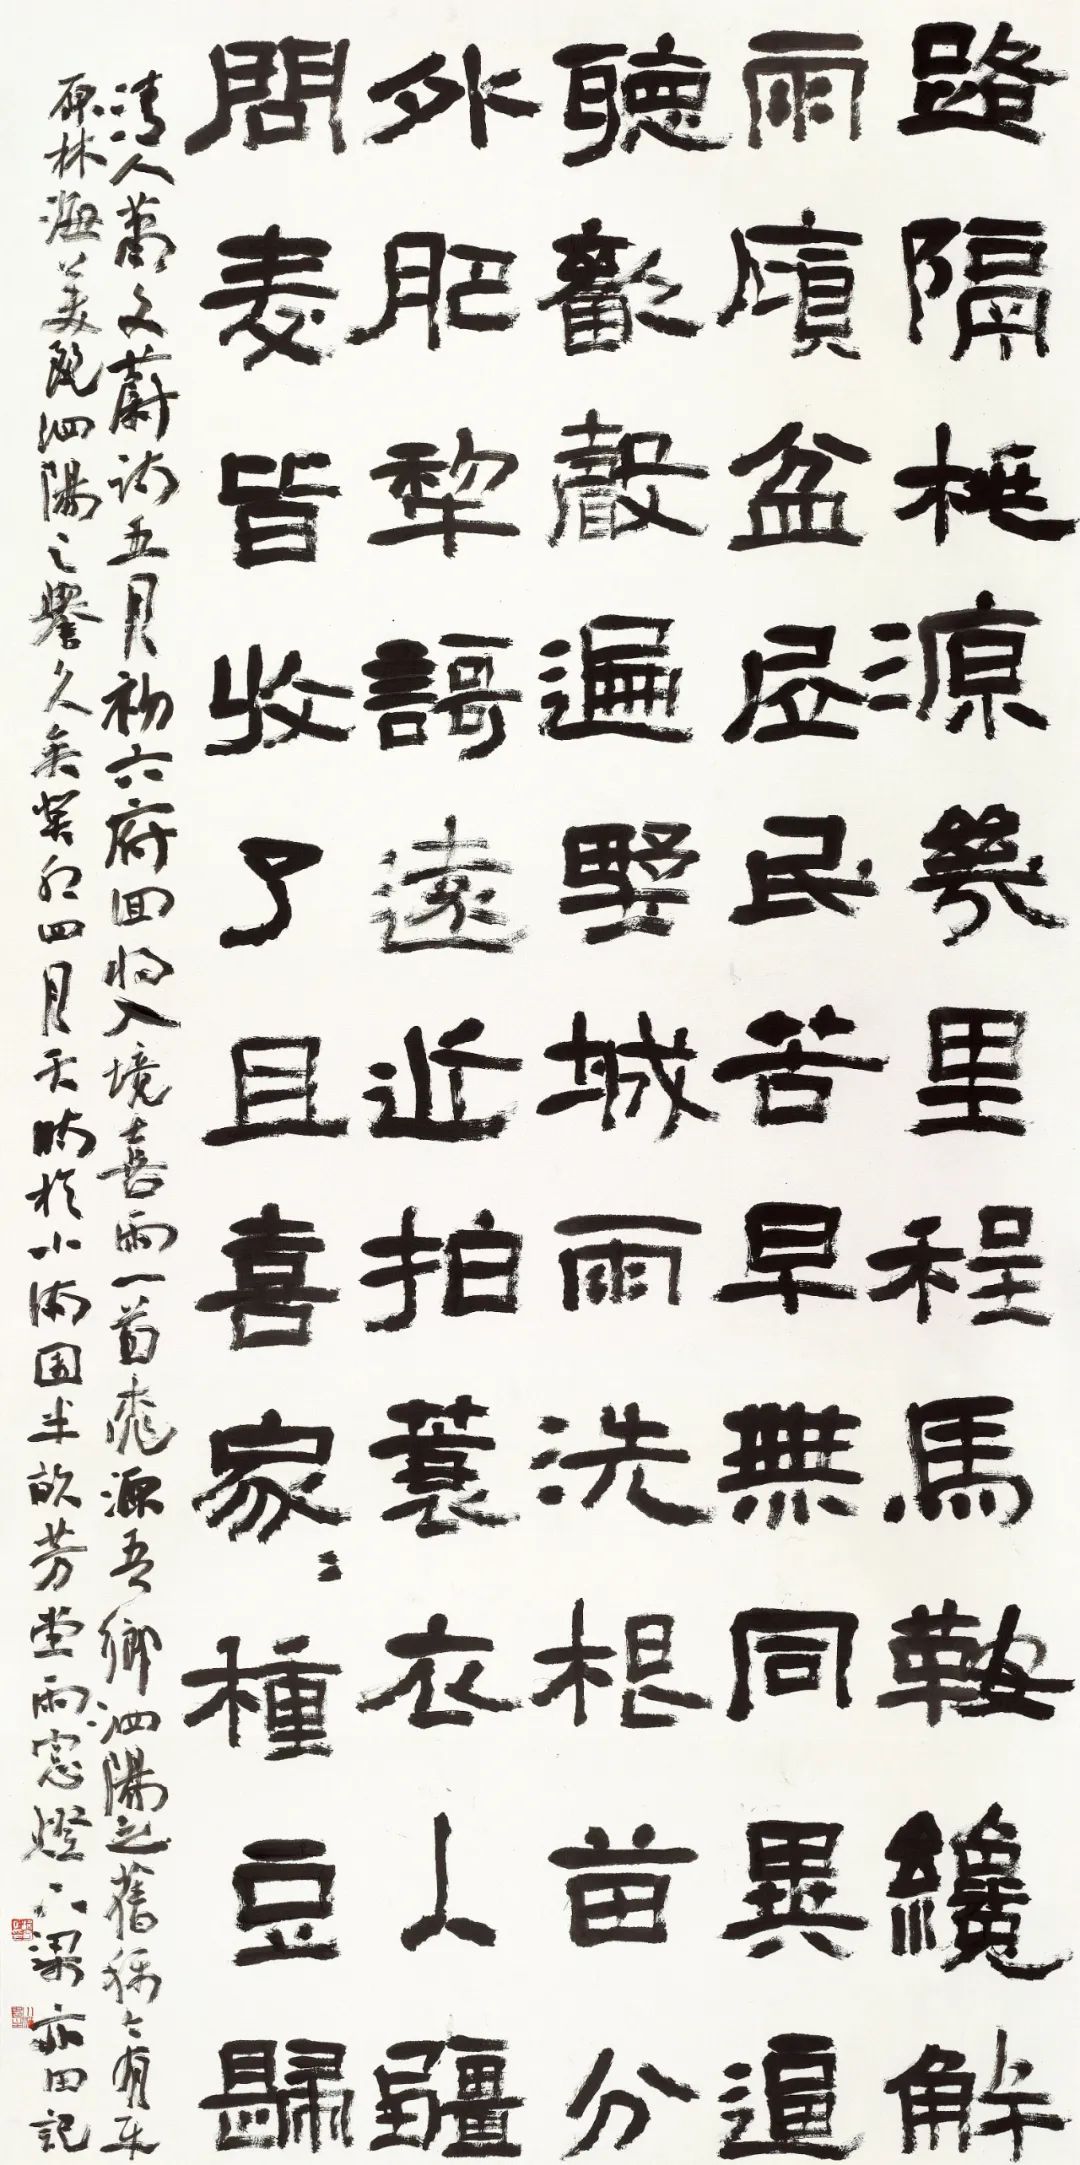 路隔桃源幾里程馬鞍纔解
雨傾盆居民苦旱無同異
聽歡聲遍野城雨洗根苗分
外肥犁謌遠近拍蓑衣人疆
問麦皆收了且喜家〻種豆歸
清人蕭文蔚詩五月初六府回将入境喜雨一首桃源吾鄉泗陽之舊稱今有平
原林海美麗泗陽之譽久矣癸卯四月於小滿園半畝芳堂雨窓燈下梁亦田記